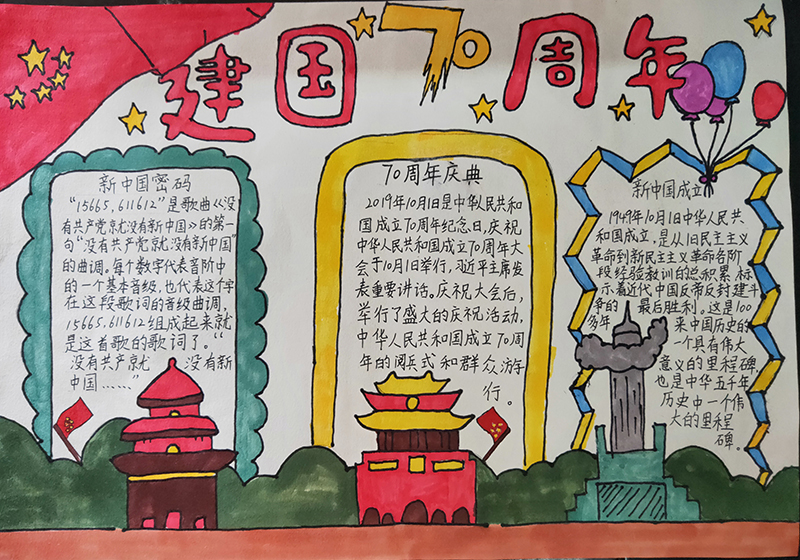 建国70周年
新中国密码
“15665.611612”是歌曲《没
有共产党京尤没有新中国》的第一
句“没有共产党京尤没有新中国”
的曲调。每个数字代表音阶中
的一个基本音级,也代表这个字
在这段歌词的音级曲调,
15665.611612组成起来就
是这首歌的歌词了。“
没有共产京尤 没有新
中国……”
70周年庆典
2019年10月1日是中华人民共和
国成立70周年纪念日,庆祝
中华人民共和国成立70周年大
会于10月1日举行,习近平主席发
表重要讲话。庆祝大会后,
举行了盛大的庆祝活动,
中华人民共和国成立70周
年的阅兵式和群众游
行。
新中国成立
1949年10月1日中华人民共
和国成立,是从旧民主主义
革命到新民主主义革命各阶
段经验教训的总积累,标
示着近代中国反帝反封建斗
争的最后胜利。这是100
多年来中国历史的
一个具有伟大
意义的里程碑,
也是中华五千年
历史中一个伟
大的里程
碑。